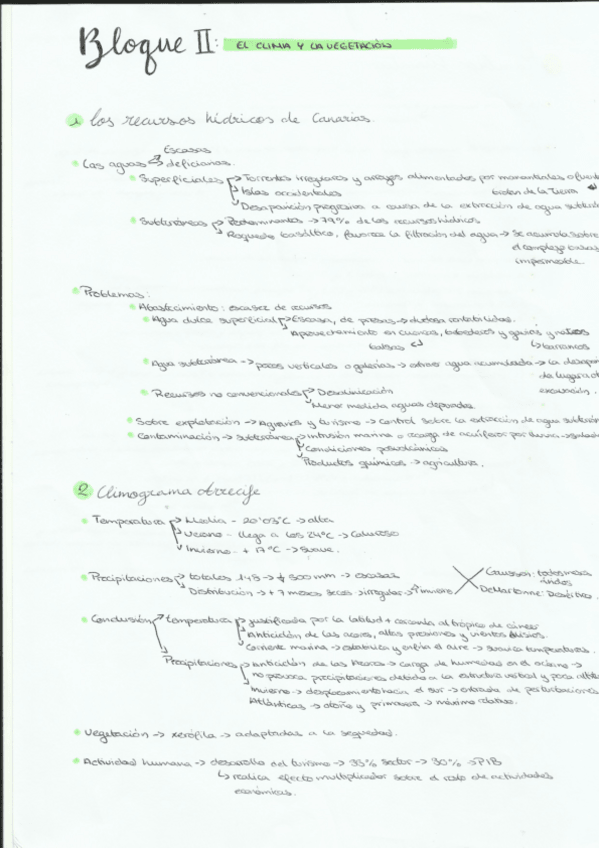 Bloque II: EL CLIMA Y LA VEGETACIÓN
1 Los recursos hídricos de Canarias.
Escasas
Las aguas deficianas.
Superficiales Torrentes irregulares y arroyos alimentados por manantiales o
Islas occidentales brotan de la tierra
Desaparición a causa de la extracción de agua
Subterráneas Predominantes → 79% de los recursos hídricos
Roquedo basáltico, favorece la filtración del agua → Se acumula sobre
el complejo basal
impermeable.
Problemas:
Abastecimiento: escasez de recursos
Agua dulce superficial Escasa, de presas → dudosa rentabilidad.
Aprovechamiento en cuevas, bebederos y
balsas barrancos
Agua subterránea → pozos verticales o galerías → extraer agua acumulada → la
de lugar a
excavación.
Recursos no convencionales Desalinización
Menor medida aguas depuradas
Sobre explotación → Agrarios y turismo → control sobre la extracción de agua
Contaminación → subterránea intrusión marina o recarga de acuíferos por lluvia →
Condiciones
Productos químicos → agricultura.
2 Climograma Arrecife
Temperatura Media - 20'03°C → alta
Verano - llega a los 24°C → Caluroso
Invierno - + 17°C → Suave.
Precipitaciones totales 145 → ↓ 300 mm → escasas Gaussen: todos meses
áridos
Distribución → + 7 meses secos → irregular → ↑ invierno DeMartonne: Desértico.
Conclusión temperatura justificada por la latitud + cercanía al trópico de cáncer
Anticiclón de las azores, altas presiones y vientos alisios.
Corriente marina → estabiliza y enfría el aire → suaviza temperaturas.
Precipitaciones anticiclón de las Azores → carga de humedad en el océano →
no provoca precipitaciones debido a la estructura vertical y poca
Invierno → desplazamiento hacia el sur → entrada de perturbaciones
Atlánticas → otoño y primavera → máximo relativo.
Vegetación → xerófila → adaptadas a la sequedad.
Actividad humana → desarrollo del turismo → 33% sector → 30% → PIB
realiza efecto multiplicador sobre el resto de actividades
económicas.